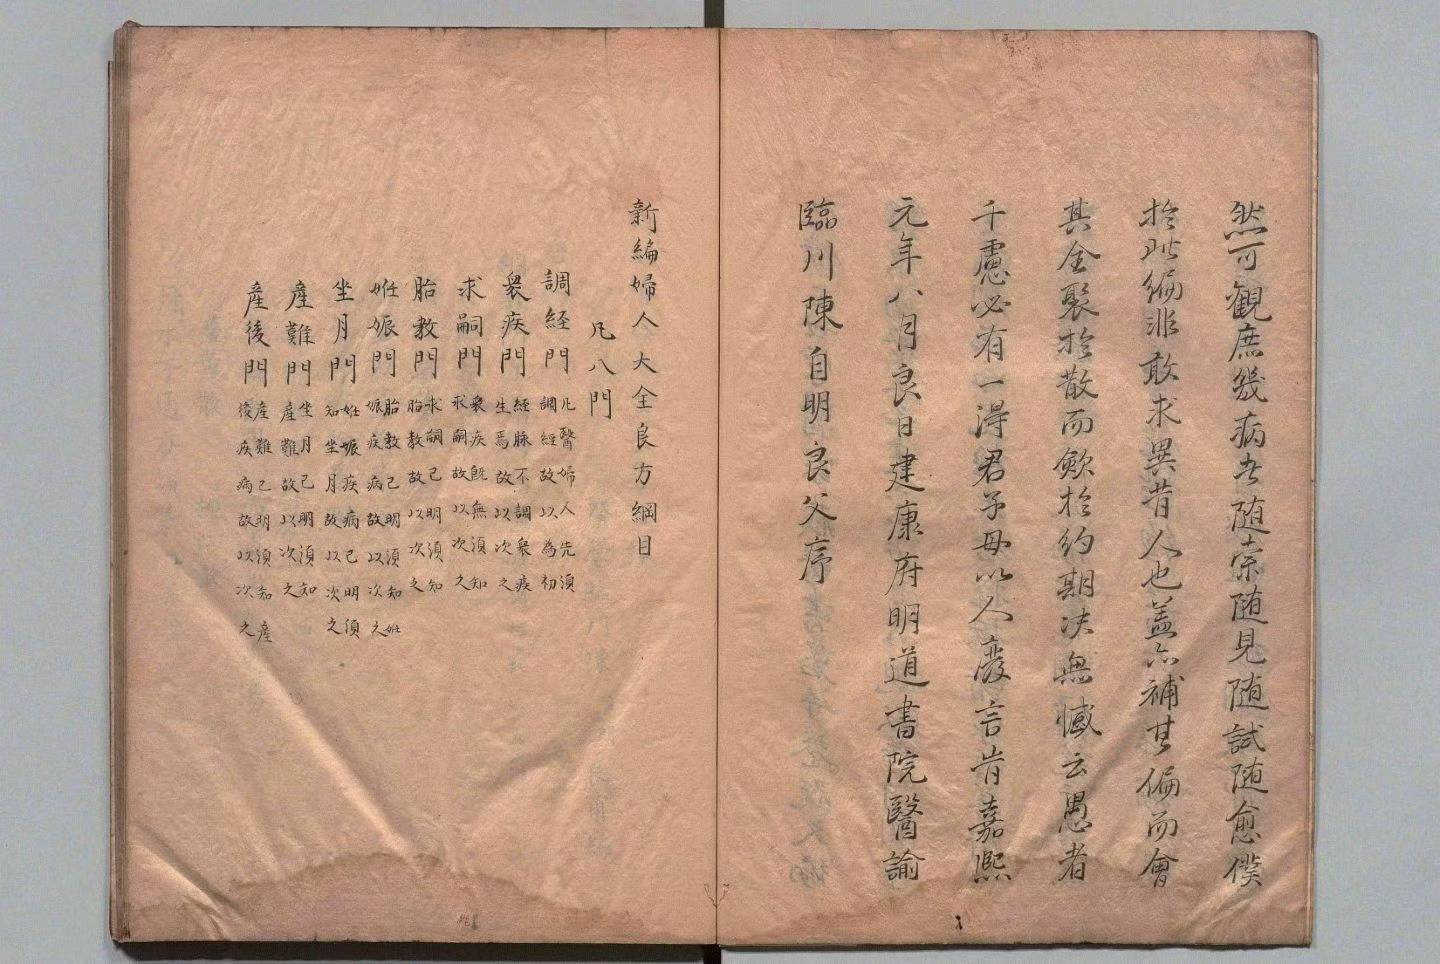 然可観庶幾病者随索随見随試随愈僕
於此編非敢求異昔人也盖亦補其偏而會
其全聚於散而歛於約期决無憾云愚者
千慮必有一得君子毋以人廢言旹嘉熙
元年八月良日建康府明道書院醫諭
臨川陳自明良父序
新編婦人大全良方綱目
凡八門
調経門 凡醫婦人先須調経故以為初
衆疾門 経脉不調衆疾生焉故以次之
求嗣門 衆疾既無須知求嗣故以次之
胎教門 求嗣已明須知胎教故以次之
妊娠門 胎教已明須知妊娠疾病故以次之
坐月門 妊娠疾病已明須知坐月故以次之
産難門 坐月已明須知産難故以次之
産後門 産難已明須知産後疾病故以次之